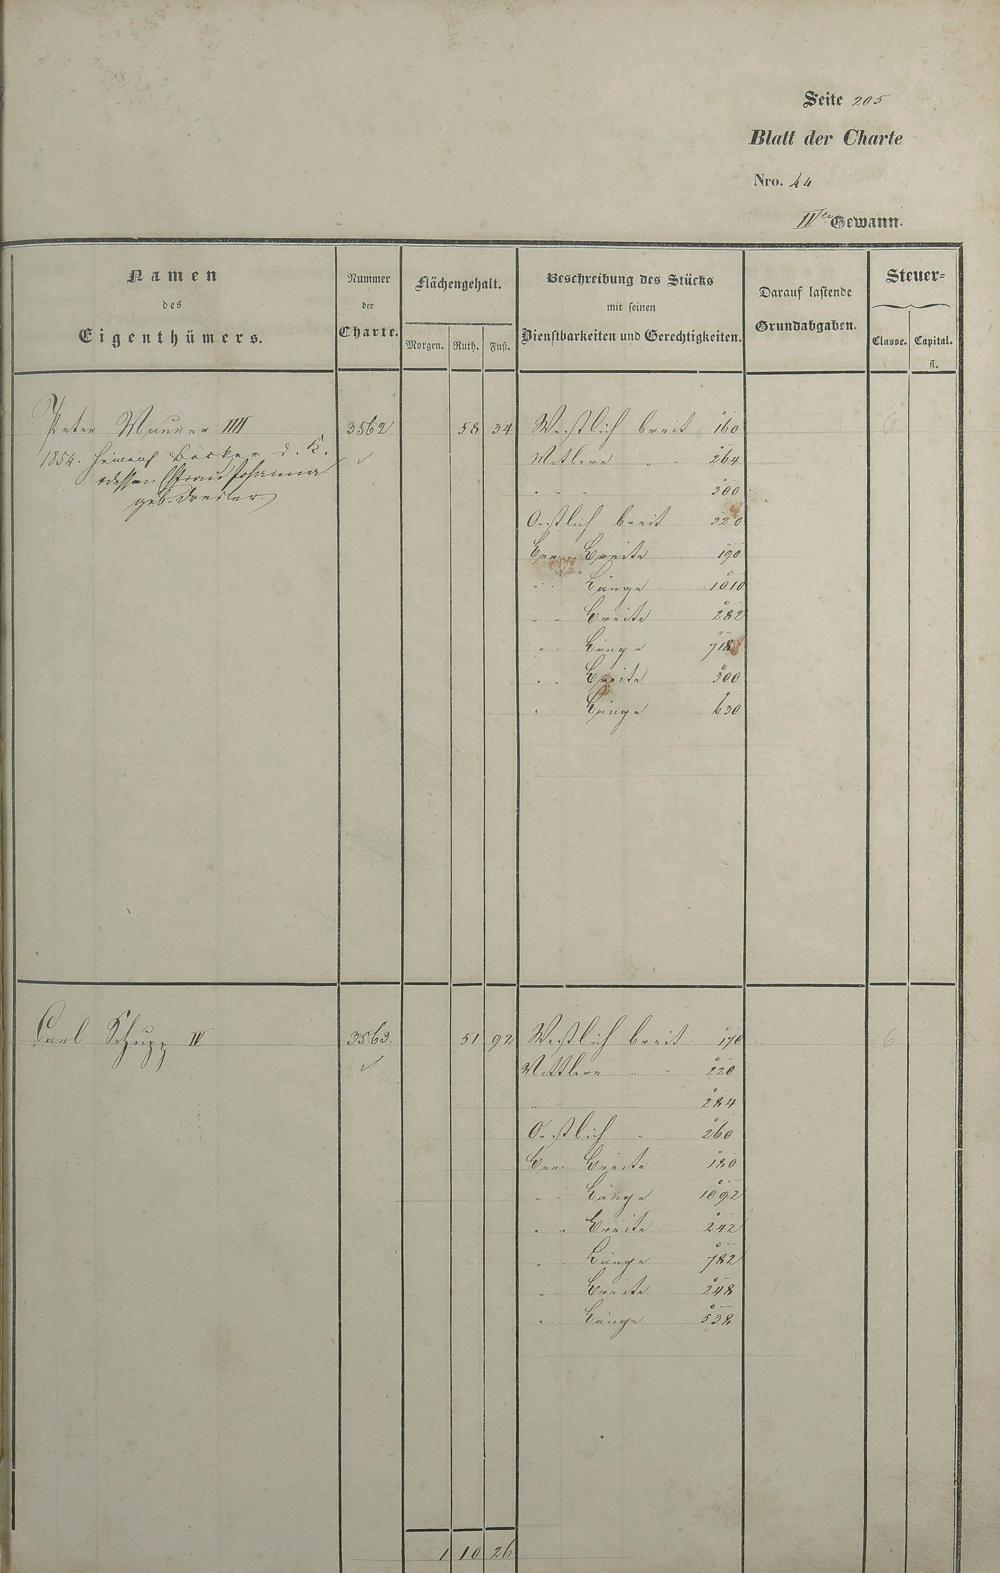 Seite 205
Blatt der Charte
Nro. 44
IIte Gewann.
Namen
des
Eigenthümers.
Nummer
der
Charte.
Flächengehalt.
Morgen. Ruth. Fuß.
Beschreibung des Stücks
mit seinen
Dienstbarkeiten und Gerechtigkeiten.
Darauf lastende
Grundabgaben.
Steuer=
Classe. Capital.
fl.
Peter Maurer IIII 3562 58 34 Westlich breit 160 6
1854. Heinrich Becker d. K. Mittlere " " 264
dessen Ehefrau Johanna " " " 300
geb. Oestlich breit 320
Ger. Breite 190
" " Länge 1010
" " Breite 282
" Länge 718
" " Breite 300
" Länge 630
Carl Schupp IV 3563. 51 92 Westlich breit 170 6
Mittlere " " 220
" " 284
Oestlich " 260
Ger. Breite 180
" " Länge 1092
" " Breite 242
" Länge 782
" Breite 248
" Länge 538
1 10 26